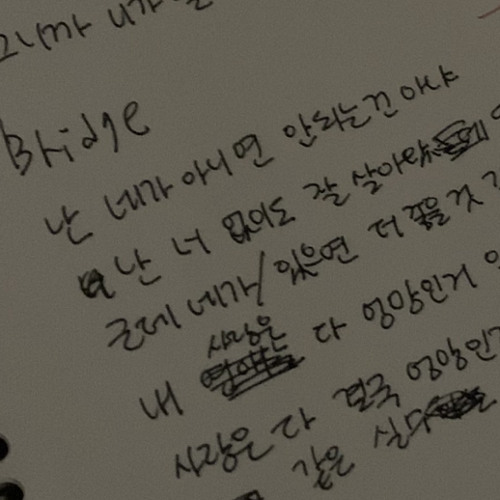 그니까 니가
Bridge
난 네가 아니면 안되는건 아냐
난 너 없이도 잘 살아
근데 네가 있으면 더
사랑은
내 다 엉망인거
사랑은 다 결국 엉망인
같은